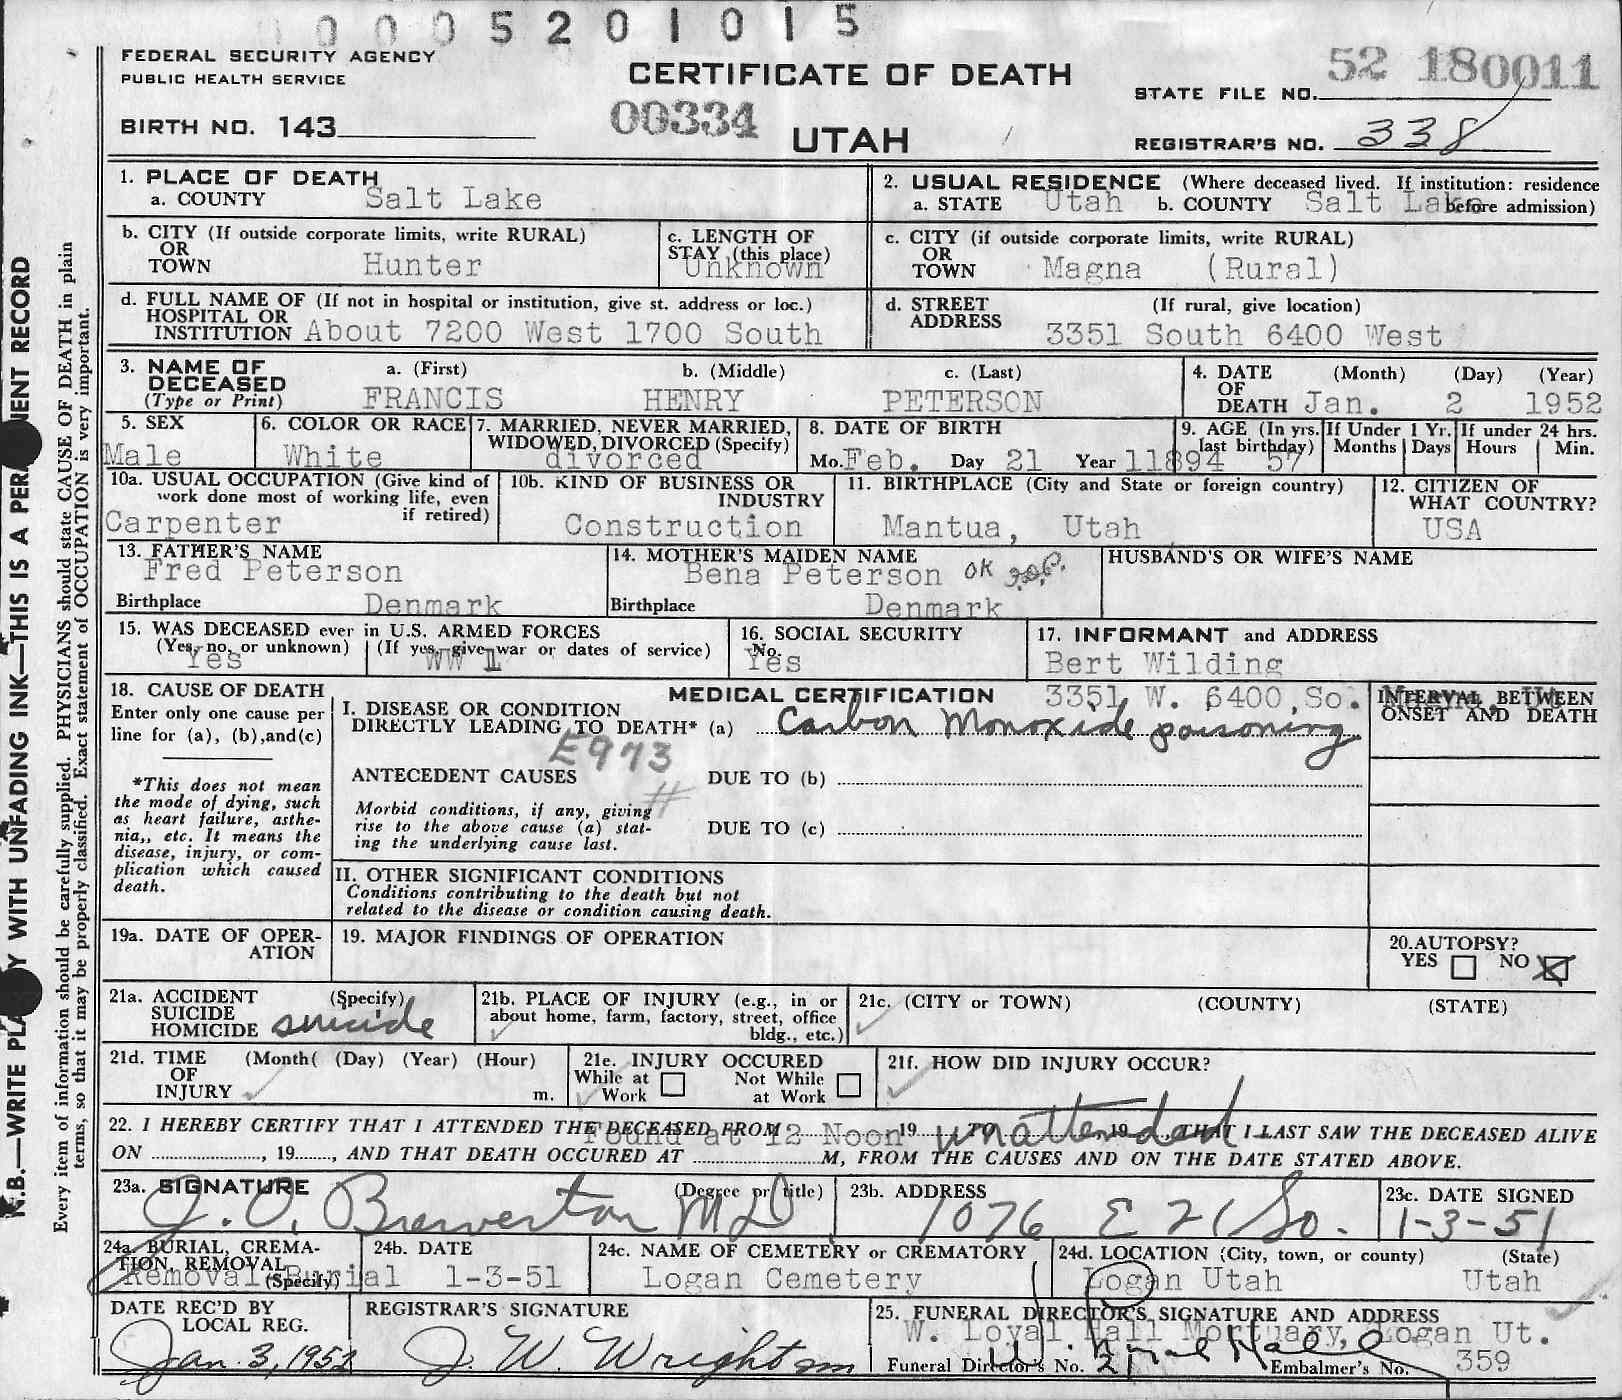 0005201015
FEDERAL SECURITY AGENCY
PUBLIC HEALTH SERVICE
CERTIFICATE OF DEATH
52 180011
STATE FILE NO.
BIRTH NO. 143
00334
UTAH
REGISTRAR'S NO. 338
1. PLACE OF DEATH
a. COUNTY Salt Lake
2. USUAL RESIDENCE (Where deceased lived. If institution: residence before admission)
a. STATE Utah b. COUNTY Salt Lake
b. CITY (If outside corporate limits, write RURAL)
OR
TOWN Hunter
c. LENGTH OF
STAY (this place)
Unknown
c. CITY (if outside corporate limits, write RURAL)
OR
TOWN Magna (Rural)
d. FULL NAME OF (If not in hospital or institution, give st. address or loc.)
HOSPITAL OR
INSTITUTION About 7200 West 1700 South
d. STREET (If rural, give location)
ADDRESS 3351 South 6400 West
3. NAME OF DECEASED
(Type or Print)
a. (First) b. (Middle) c. (Last)
FRANCIS HENRY PETERSON
4. DATE (Month) (Day) (Year)
OF
DEATH Jan. 2 1952
5. SEX
Male
6. COLOR OR RACE
White
7. MARRIED, NEVER MARRIED,
WIDOWED, DIVORCED (Specify)
divorced
8. DATE OF BIRTH
Mo. Feb. Day 21 Year 11894
9. AGE (In yrs. last birthday)
57
If Under 1 Yr.
Months Days
If under 24 hrs.
Hours Min.
10a. USUAL OCCUPATION (Give kind of
work done most of working life, even
if retired)
Carpenter
10b. KIND OF BUSINESS OR
INDUSTRY
Construction
11. BIRTHPLACE (City and State or foreign country)
Mantua, Utah
12. CITIZEN OF
WHAT COUNTRY?
USA
13. FATHER'S NAME
Fred Peterson
Birthplace Denmark
14. MOTHER'S MAIDEN NAME
Bena Peterson OK
Birthplace Denmark
HUSBAND'S OR WIFE'S NAME
15. WAS DECEASED ever in U.S. ARMED FORCES
(Yes, no, or unknown) (If yes, give war or dates of service)
Yes WW 1
16. SOCIAL SECURITY
No.
Yes
17. INFORMANT and ADDRESS
Bert Wilding
3351 W. 6400 So.
18. CAUSE OF DEATH
Enter only one cause per
line for (a), (b), and (c)
*This does not mean
the mode of dying, such
as heart failure, asthe-
nia,, etc. It means the
disease, injury, or com-
plication which caused
death.
MEDICAL CERTIFICATION
INTERVAL BETWEEN
ONSET AND DEATH
I. DISEASE OR CONDITION
DIRECTLY LEADING TO DEATH* (a) Carbon Monoxide poisoning
E973
ANTECEDENT CAUSES DUE TO (b)
#
Morbid conditions, if any, giving
rise to the above cause (a) stat-
ing the underlying cause last.
DUE TO (c)
II. OTHER SIGNIFICANT CONDITIONS
Conditions contributing to the death but not
related to the disease or condition causing death.
19a. DATE OF OPER-
ATION
19. MAJOR FINDINGS OF OPERATION
20. AUTOPSY?
YES NO
21a. ACCIDENT (Specify)
SUICIDE
HOMICIDE suicide
21b. PLACE OF INJURY (e.g., in or
about home, farm, factory, street, office
bldg., etc.)
21c. (CITY or TOWN) (COUNTY) (STATE)
21d. TIME (Month( (Day) (Year) (Hour)
OF
INJURY m.
21e. INJURY OCCURED
While at Work Not While at Work
21f. HOW DID INJURY OCCUR?
22. I HEREBY CERTIFY THAT I ATTENDED THE DECEASED FROM 19 TO 19, THAT I LAST SAW THE DECEASED ALIVE
Found at 12 Noon unattended
ON, 19, AND THAT DEATH OCCURED AT M, FROM THE CAUSES AND ON THE DATE STATED ABOVE.
23a. SIGNATURE (Degree or title)
J. O. Brewerton MD
23b. ADDRESS
1076 E 21 So.
23c. DATE SIGNED
1-3-51
24a. BURIAL, CREMA-
TION, REMOVAL
(Specify)
Removal Burial
24b. DATE
1-3-51
24c. NAME OF CEMETERY or CREMATORY
Logan Cemetery
24d. LOCATION (City, town, or county) (State)
Logan Utah Utah
DATE REC'D BY
LOCAL REG.
Jan. 3, 1952
REGISTRAR'S SIGNATURE
J. W. Wright
25. FUNERAL DIRECTOR'S SIGNATURE AND ADDRESS
W. Loyal Hall Mortuary, Logan Ut.
Funeral Director's No. Embalmer's No. 359
N.B.—WRITE PLAINLY WITH UNFADING INK—THIS IS A PERMANENT RECORD
Every item of information should be carefully supplied. PHYSICIANS should state CAUSE OF DEATH in plain
terms, so that it may be properly classified. Exact statement of OCCUPATION is very important.